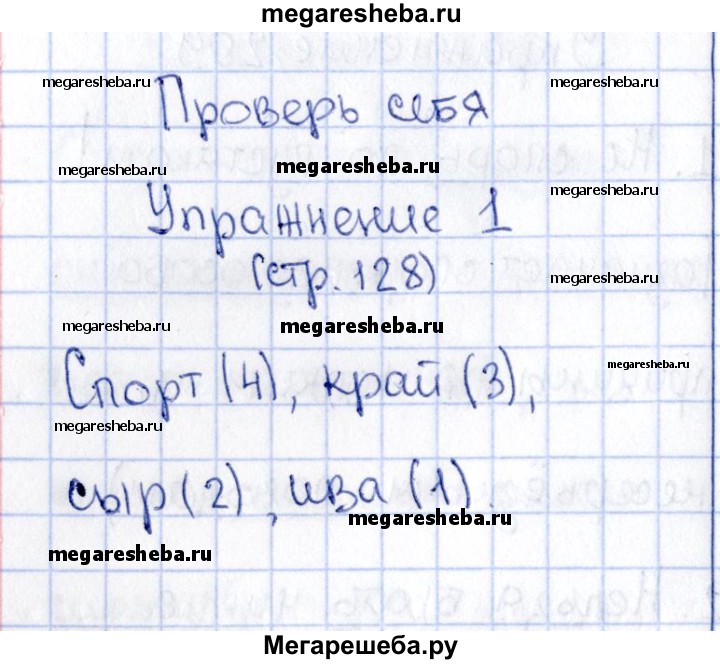 megaresheba.ru
megaresheba.ru megaresheba.ru
Проверь себя
megaresheba.ru megaresheba.ru
Упражнение 1 megaresheba.ru
(стр. 128) megaresheba.ru
megaresheba.ru megaresheba.ru
Спорт (4), край (3), megaresheba.ru
megaresheba.ru
сыр (2), ива (1).
megaresheba.ru
megaresheba.ru
Мегарешеба.ру